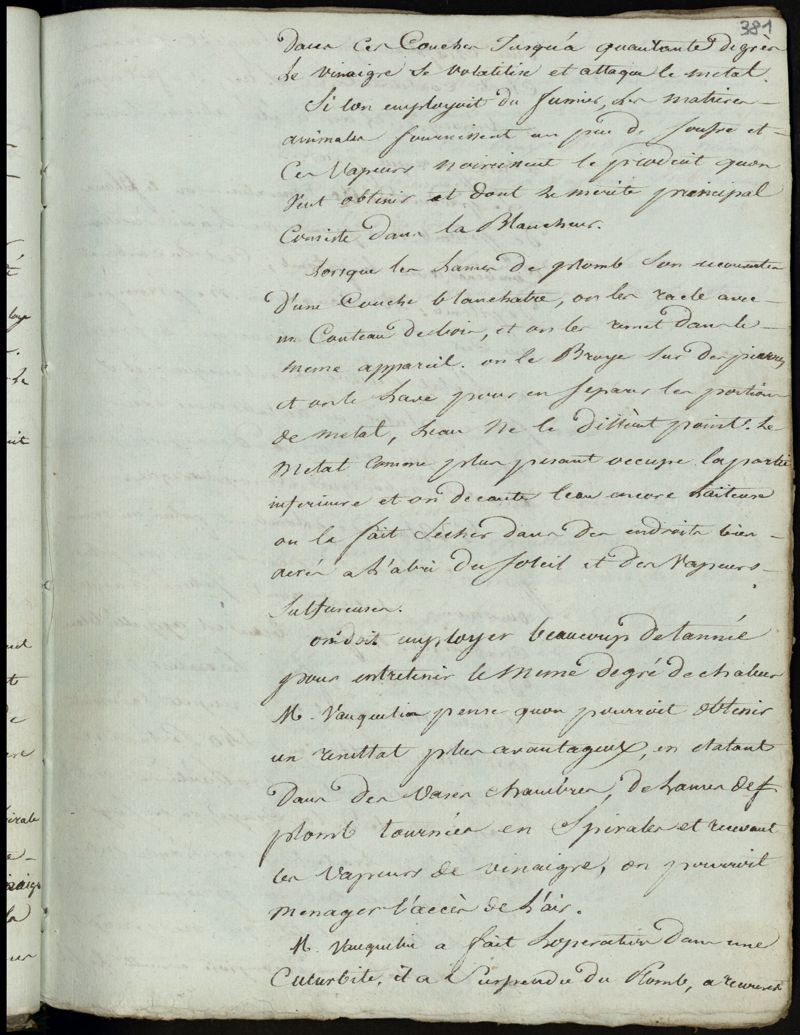 381
dans ces Couches Jusqu'a quarante degrés
Le vinaigre Se volatilise et attaque le metal.
Si lon employoit du fumier, Les matieres
animales fournissent un peu de soufre et
Ces Vapeurs noircissent le produit quon
Veut obtenir et dont Le merite principal
Consiste dans la Blancheur.
Lorsque les Lames de plomb Son recouvertes
D'une Couche blanchatre, on les racle avec
un Couteau de bois, et on les remet dans le
meme appareil. on le Broye Sur des pierres
et on le Lave pour en Separer les portions
de metal, Leau Ne le dissout point. Le
Metal comme plus pesant occupe la partie
inferieure et on decante leau encore Laiteuse
on la fait Secher dans des endroits bien
aerés a L'abri du Soleil et des Vapeurs
Sulfureuses.
on doit employer beaucoup de tannée
pour entretenir le meme degré de chaleur
M. Vauquelin pense quon pourroit obtenir
un resultat plus avantageux, en etalant
Dans des Vases chambrés, de Lames de
plomb tournées en Spirales et recevant
les Vapeurs de vinaigre, on pourroit
menager l'accès de L'air.
M. Vauquelin a fait Loperation dans une
Cucurbite, il a Suspendu du Plomb, a recouvert